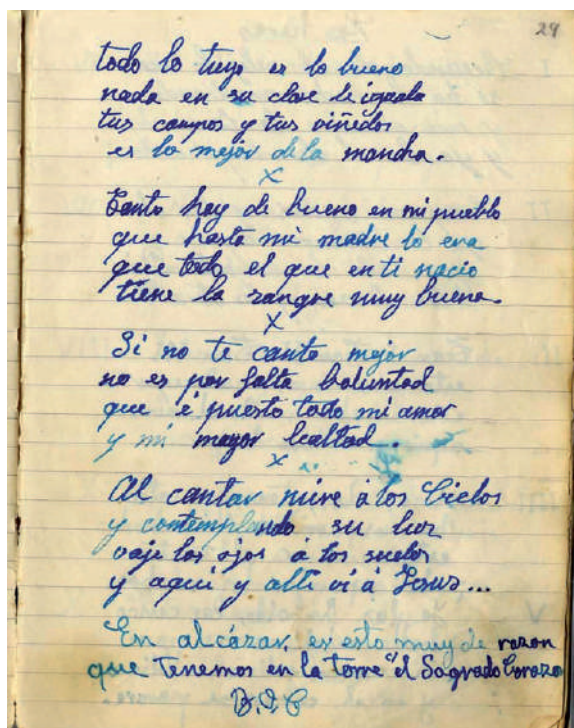 29
todo lo tuyo es lo bueno
nada en su clase le iguala
tus campos y tus viñedos
es lo mejor de la mancha.
x
Tanto hay de bueno en mi pueblo
que hasta mi madre lo era
que todo el que en ti nacio
tiene la sangre muy buena.
x
Si no te canto mejor
no es por falta boluntad
que é puesto todo mi amor
y mi mayor lealtad.
x
Al cantar miré á los Cielos
y contemplando su luz
vajé los ojos á los suelos
y aquí y allí ví á Jesus...
En alcázar, es esto muy de razon
que tenemos en la torre "el Sagrado Corazo